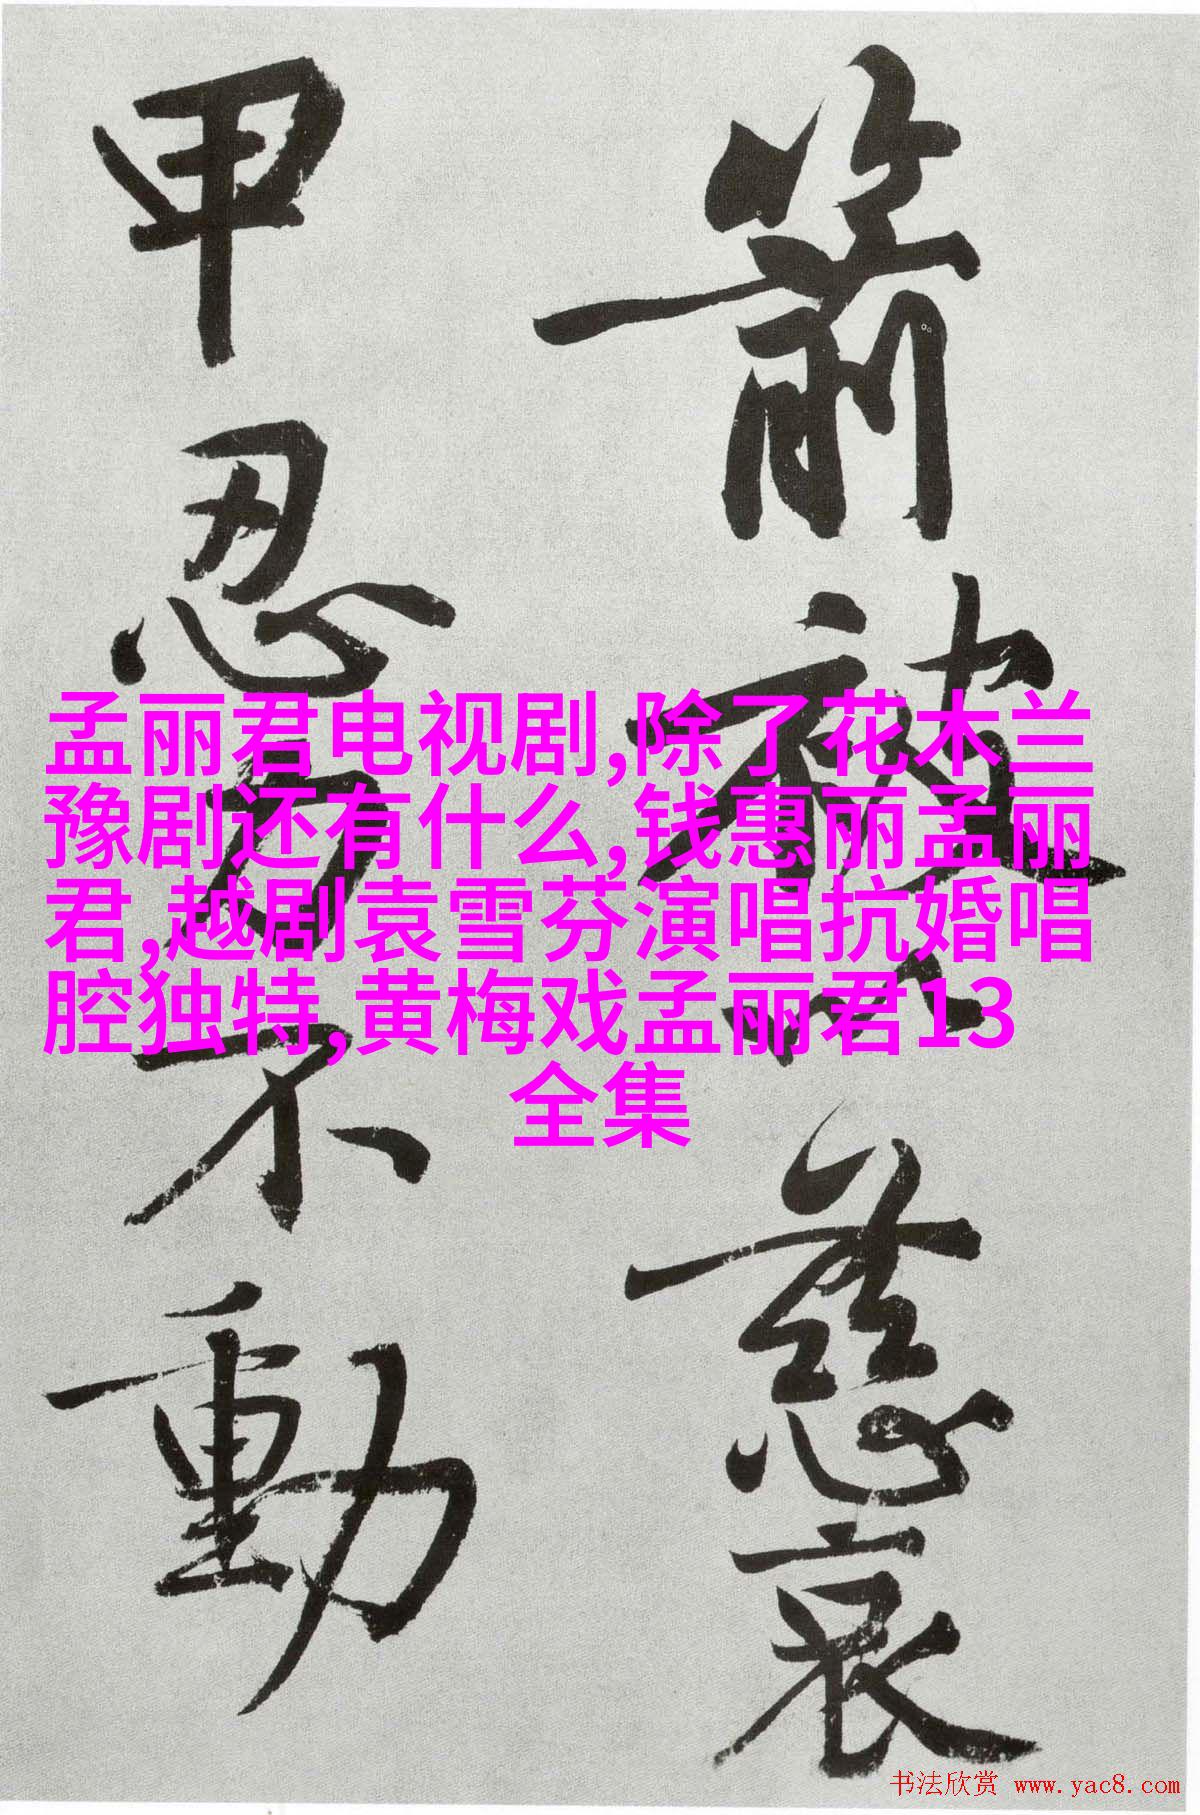 箭被慈哀
甲忍力不動
孟丽君电视剧,除了花木兰
豫剧还有什么,钱惠丽孟丽
君,越剧袁雪芬演唱抗婚唱
腔独特,黄梅戏孟丽君13
全集
书法欣赏 www.yac8.com